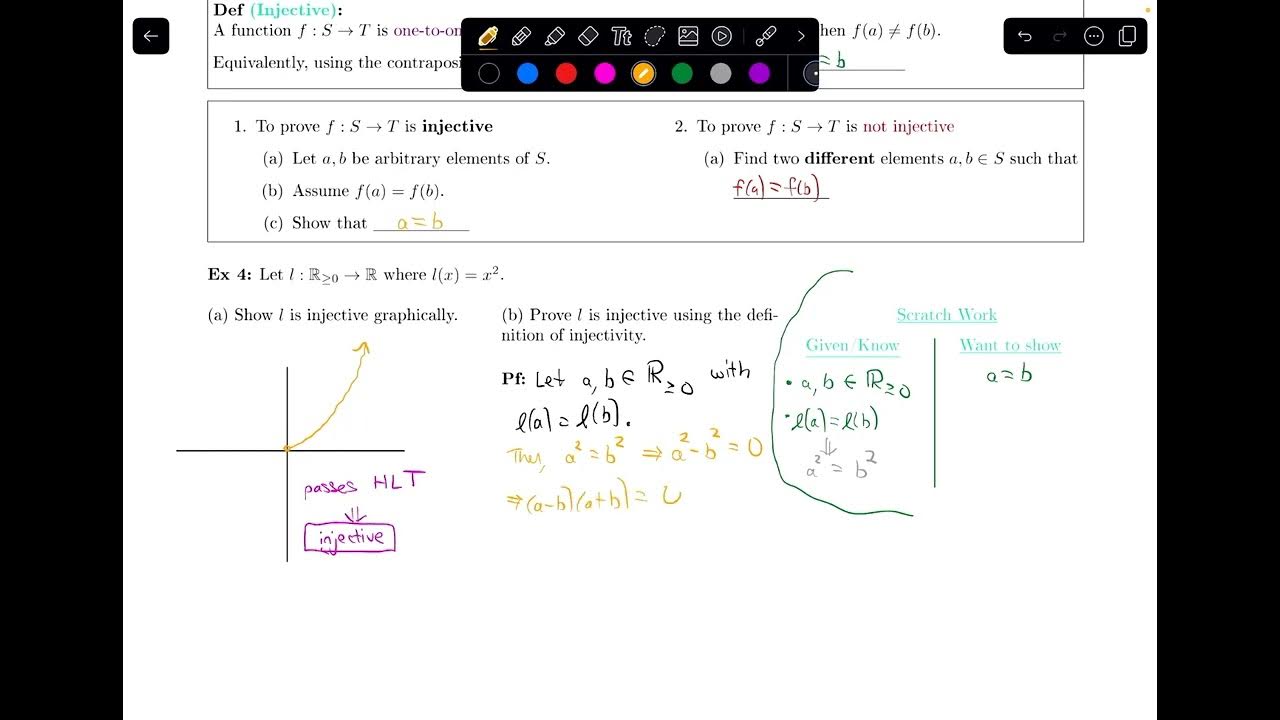 Def (Injective):
A function f : S → T is one-to-on
hen f(a) ≠ f(b).
Equivalently, using the contraposi
= b
Tt
1. To prove f : S → T is injective
(a) Let a, b be arbitrary elements of S.
(b) Assume f(a) = f(b).
(c) Show that a = b
2. To prove f : S → T is not injective
(a) Find two different elements a, b ∈ S such that
f(a) = f(b)
Ex 4: Let l : ℝ≥0 → ℝ where l(x) = x².
(a) Show l is injective graphically.
passes HLT
⇓
injective
(b) Prove l is injective using the defi-
nition of injectivity.
Pf: Let a, b ∈ ℝ≥0 with
l(a) = l(b).
Then, a² = b² ⇒ a² - b² = 0
⇒ (a-b)(a+b) = 0
Scratch Work
Given/Know
• a, b ∈ ℝ≥0
• l(a) = l(b)
⇓
a² = b²
Want to show
a = b